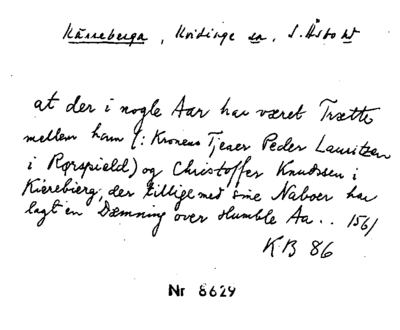 Kärreberga, Kvidinge sn, S. Åsbo hd
at der i nogle Aar har været Trætte
mellem ham (: Kronens Tjener Peder Lauritzen
i Rørspield) og Christoffer Knudssen i
Kierebierg, der tillige med sine Naboer har
lagt en Dæmning over Humble Aa.. 1561
KB 86
Nr 8629